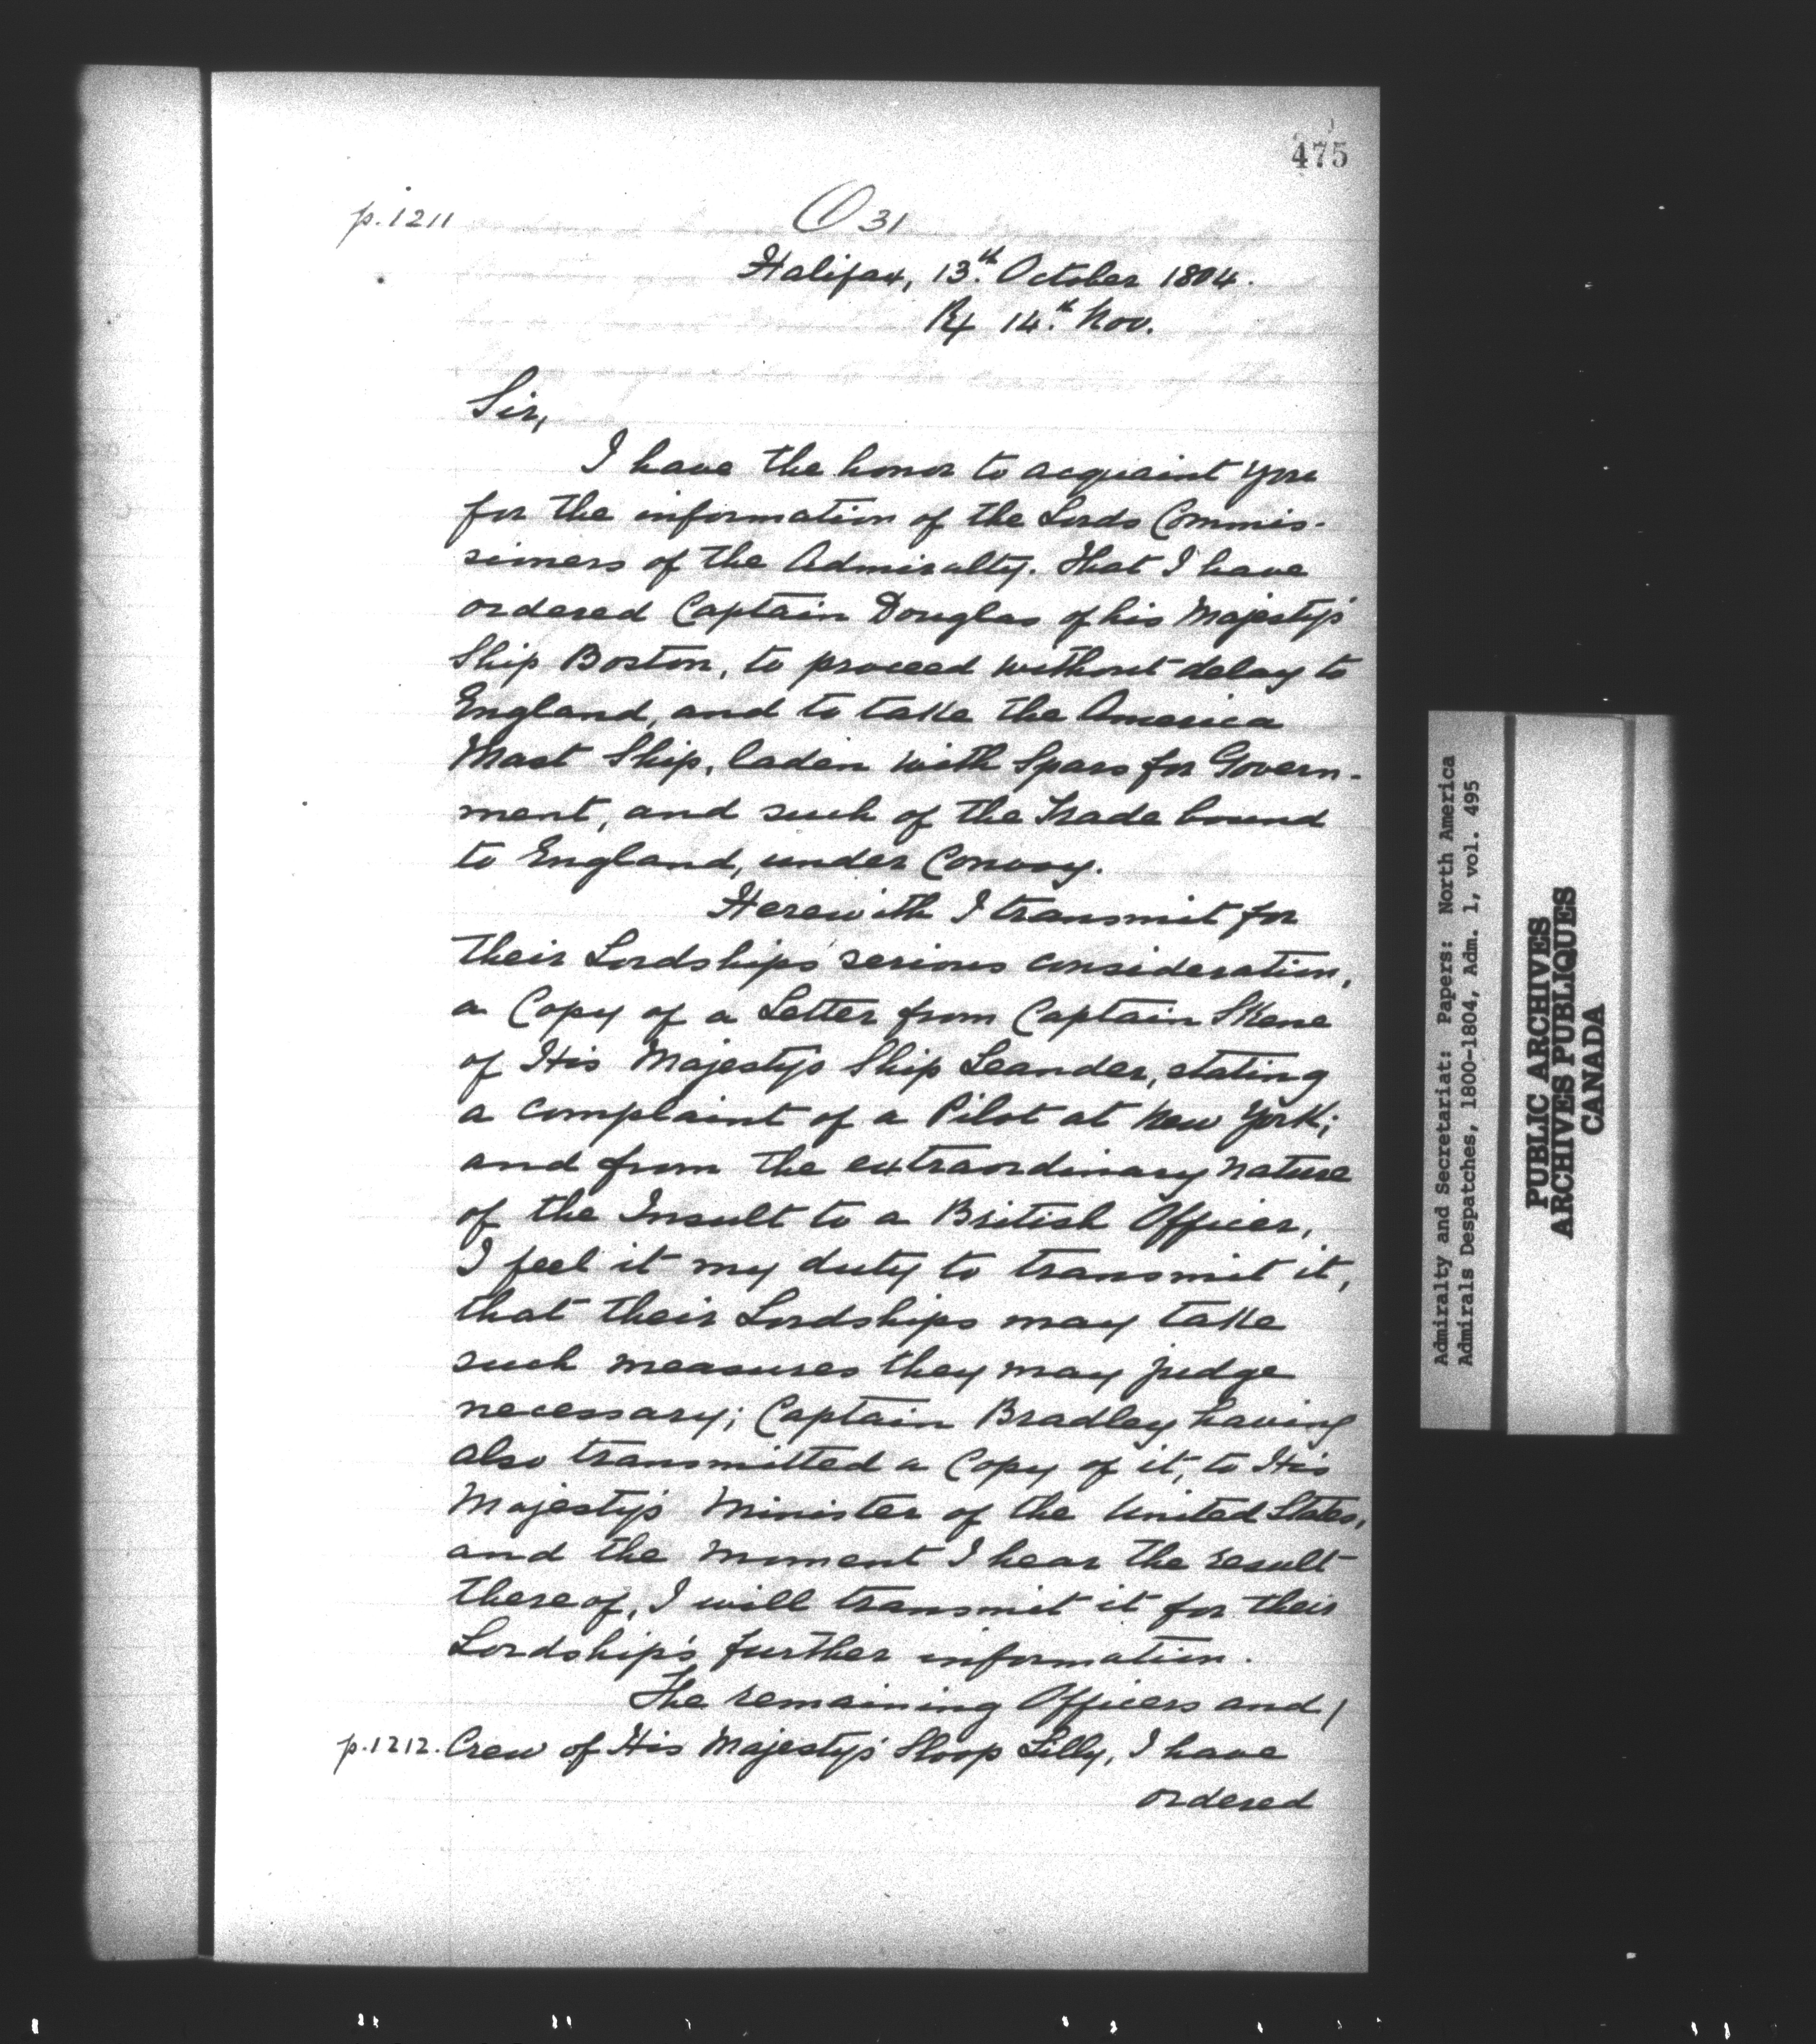 475
p. 1211
31
Halifax, 13.th October 1804.
Rx 14.th Nov.
Sir,
I have the honor to acquaint you
for the information of the Lords Commis-
sioners of the Admiralty. That I have
ordered Captain Douglas of his Majesty's
Ship Boston, to proceed without delay to
England, and to take the America
Mast Ship, laden with Spars for Govern-
ment, and such of the Trade bound
to England, under Convoy.
Herewith I transmit for
their Lordships serious consideration,
a Copy of a Letter from Captain Skene
of His Majesty's Ship Leander, stating
a complaint of a Pilot at New York;
and from the extraordinary nature
of the Insult to a British Officer,
I feel it my duty to transmit it,
that their Lordships may take
such measures they may judge
necessary; Captain Bradley having
also transmitted a Copy of it, to His
Majesty's Minister of the United States,
and the moment I hear the result
thereof, I will transmit it for their
Lordship's further information.
The remaining Officers and /
p. 1212. Crew of His Majesty's Sloop Lilly, I have
ordered
Admiralty and Secretariat: Papers: North America
Admirals Despatches, 1800-1804, Adm. 1, vol. 495
PUBLIC ARCHIVES
ARCHIVES PUBLIQUES
CANADA